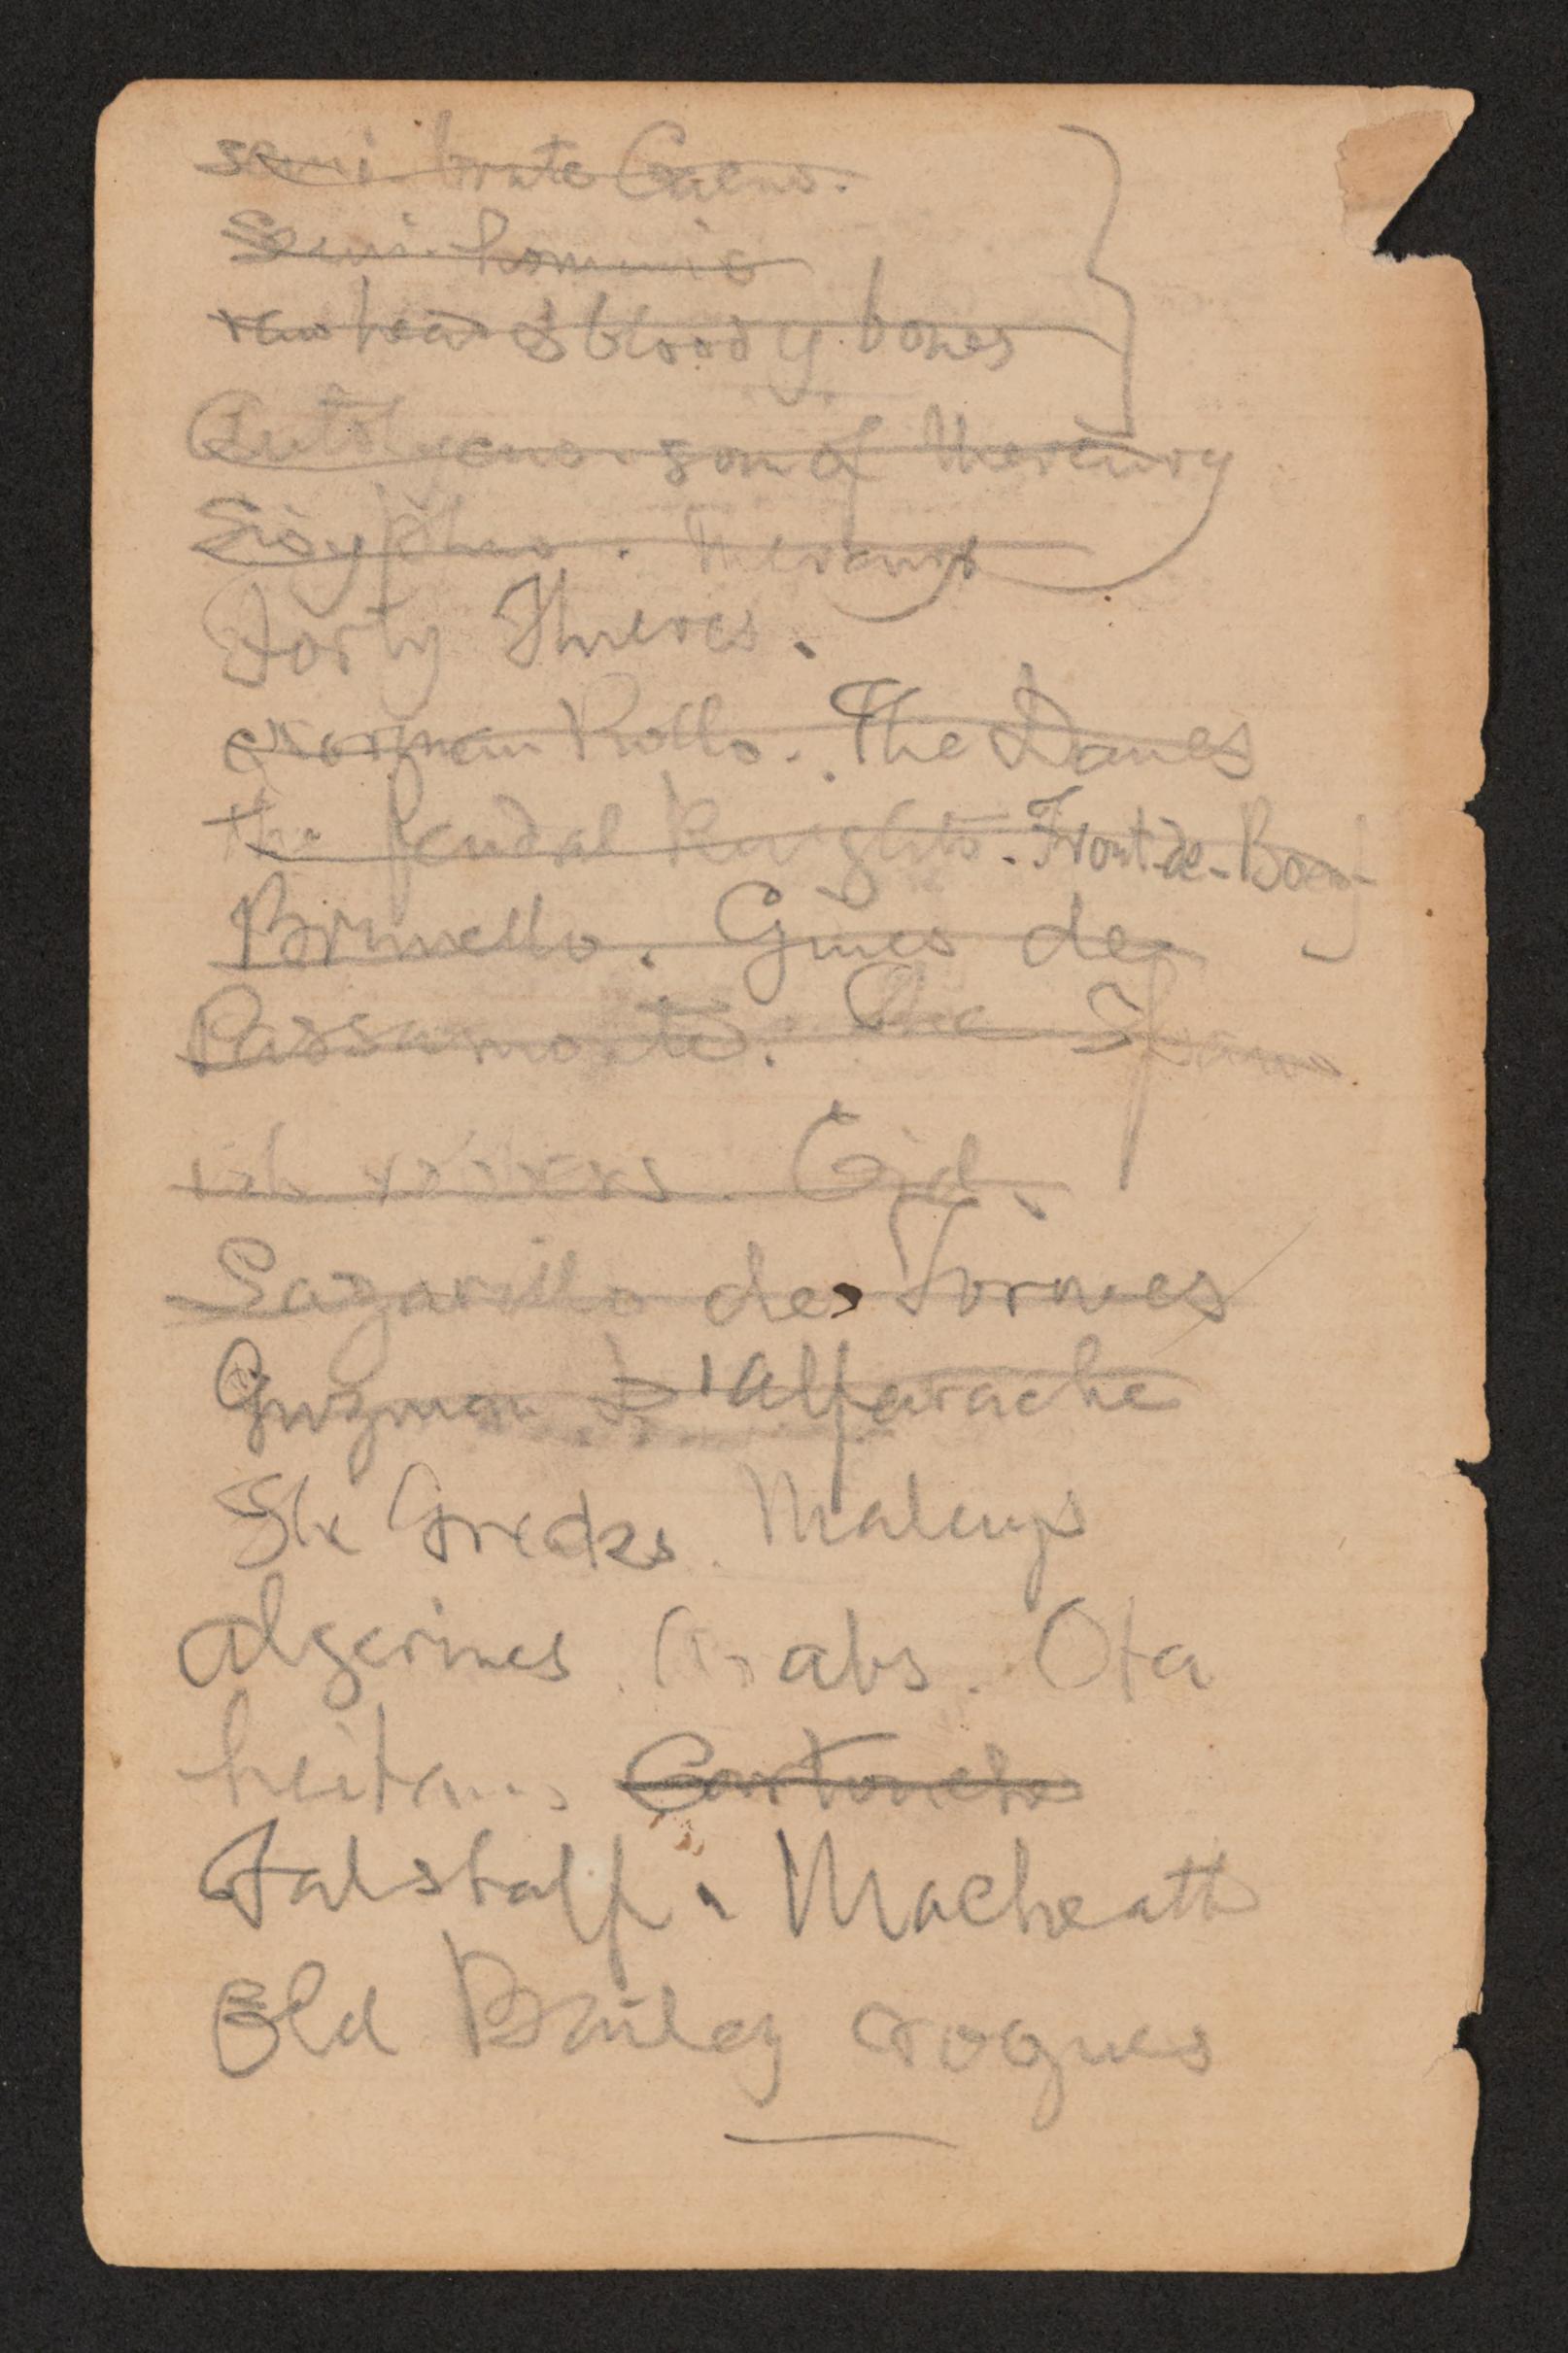 semi-brute Cacus.
Semi-hominis
rawhead & bloody bones
Autolycus. son of Mercury
Sisyphus. Mercury
Forty Thieves.
Norman Rollo. The Danes
the feudal Knights. Front-de-Boeuf
Brunello. Gines de
Passamonte. The Span
ish rovers. Cid.
Lazarillo de Tormes
Guzman D'Alfarache
The Greeks. Malays
Algerines. Arabs. Ota
heitans. Cartouche
Falstaff. Macheath
Old Bailey rogues